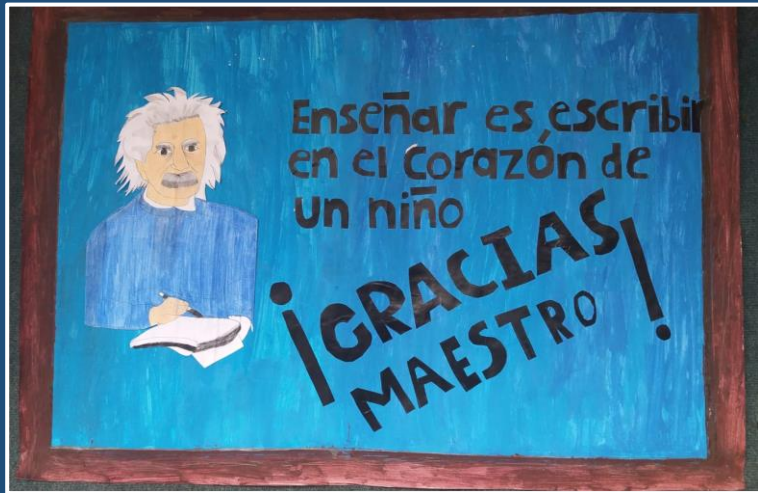 Enseñar es escribir
en el Corazón de
un niño
¡GRACIAS
MAESTRO!